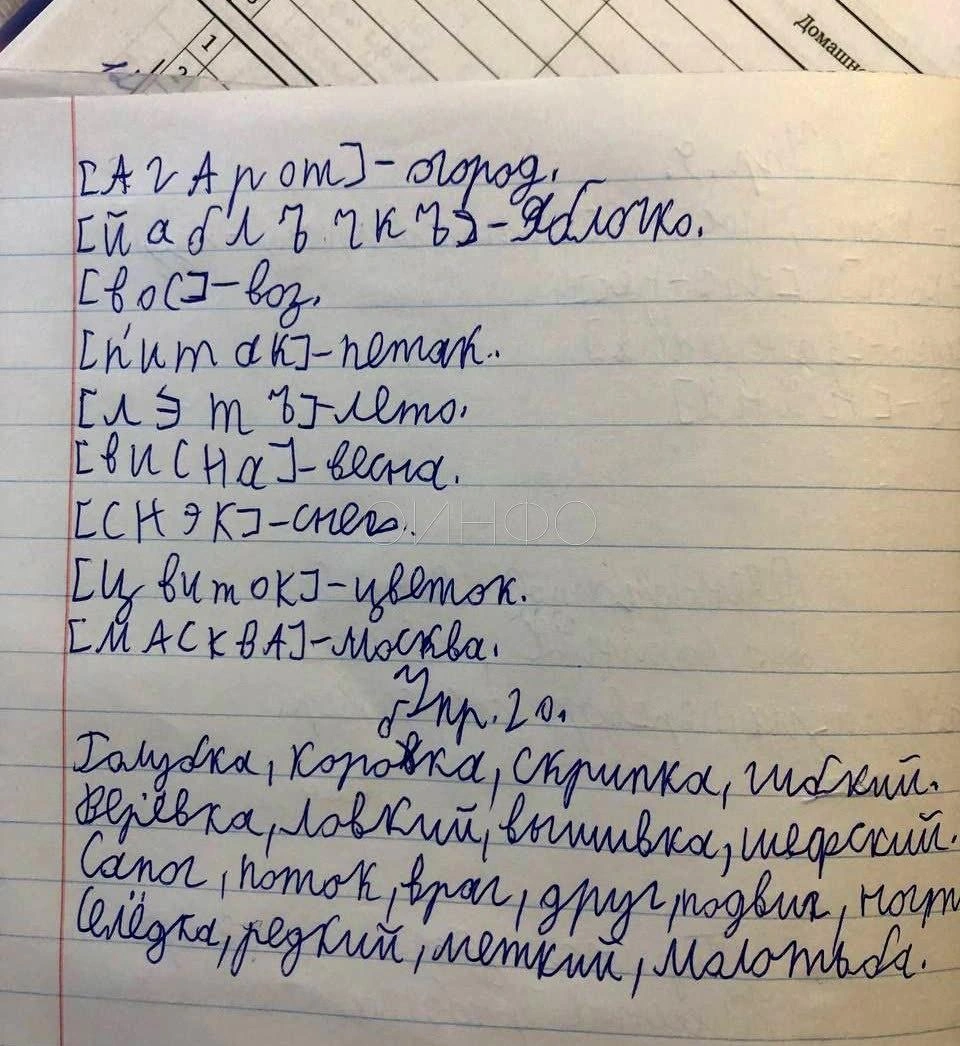 Домашн
1
2
[АгАрот]-огород.
[йаблъчкъ]-Яблочко.
[вос]-воз.
[п'итак]-петак..
[лэтъ]-лето.
[висна]-весна.
[снэк]-снег..
ОИНФО
[цвиток]-цветок.
[МАСКВА]-Москва.
Упр. 20.
Голубка, коробка, скрипка, гибкий.
Верёвка, ловкий, вышивка, шефский.
Сапог, поток, враг, друг, подвиг, ногт
Селёдка, редкий, меткий, малотьба.